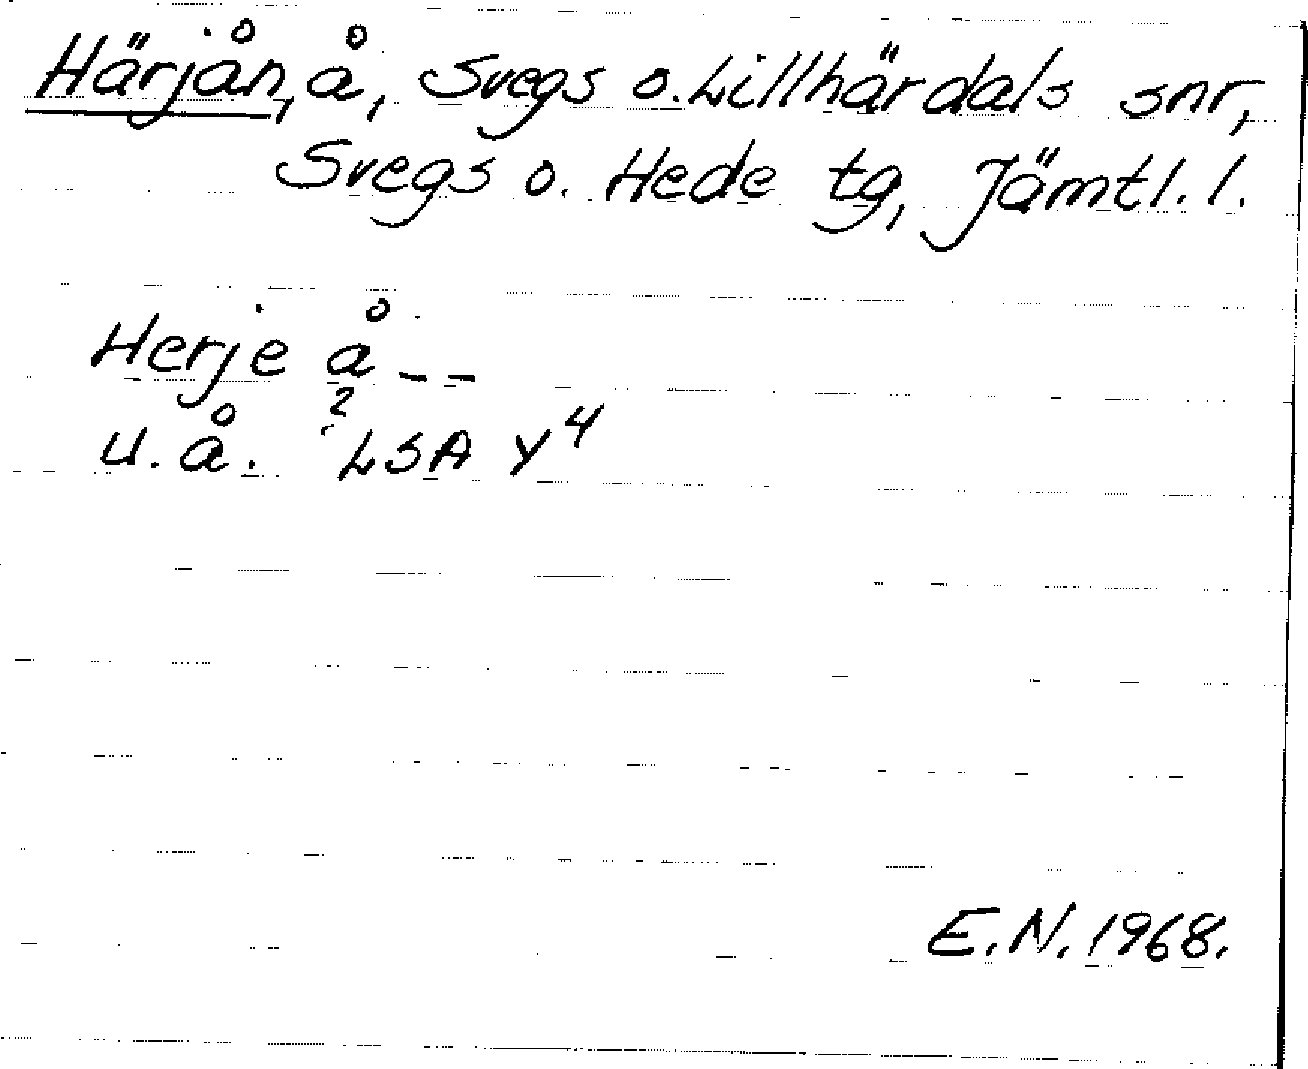 Härjån, å, Svegs o. Lillhärdals snr,
Svegs o. Hede tg, Jämtl. l.
Herje å --
u. å. ? LSA Y4
E.N. 1968.